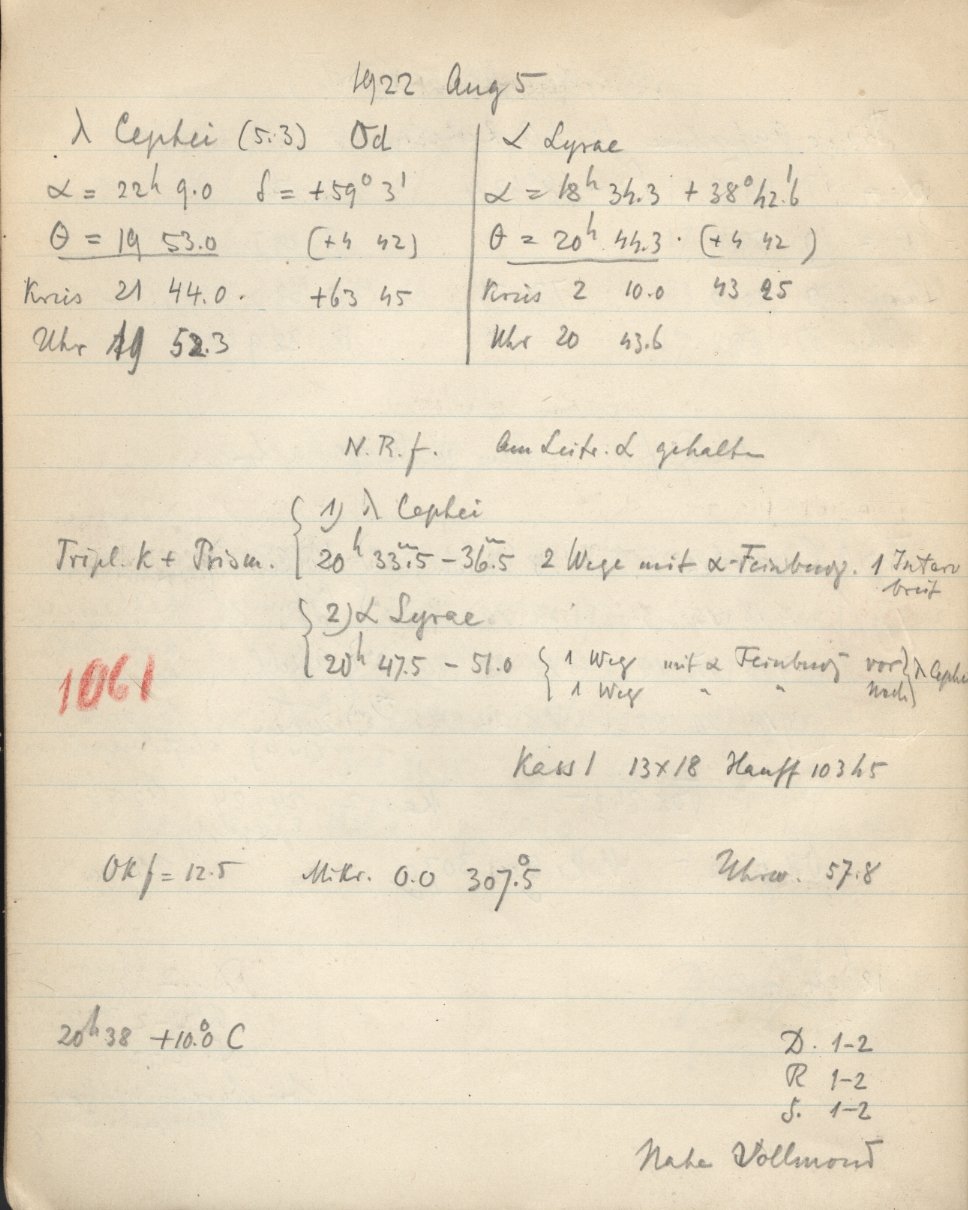 1922 Aug 5
λ Cephei (5.3) Od
α = 22h 9.0 δ = +59° 3'
θ = 19 53.0 (+4 42)
Kreis 21 44.0. +63 45
Uhr 19 52.3
α Lyrae
α = 18h 34.3 + 38° 42.'6
θ = 20h 44.3. (+4 42)
Kreis 2 10.0 43 25
Uhr 20 43.6
N. R. f. Am Leitr. α gehalten
1) λ Cephei
Tripl. K + Prism. 20h 33m.5 – 36m.5 2 Wege mit α-Feinbewg. 1 Interv
breit
2) α Lyrae
20h 47.5 – 51.0 1 Weg mit α Feinbewg vor λ Cephei
1 Weg " " nach
1061
Kass 1 13×18 Hauff 10345
OKf = 12.5 Mikr. 0.0 307.°5 Uhrw. 57.8
20h 38 +10.°0 C
D. 1-2
R 1-2
S. 1-2
Nahe Vollmond